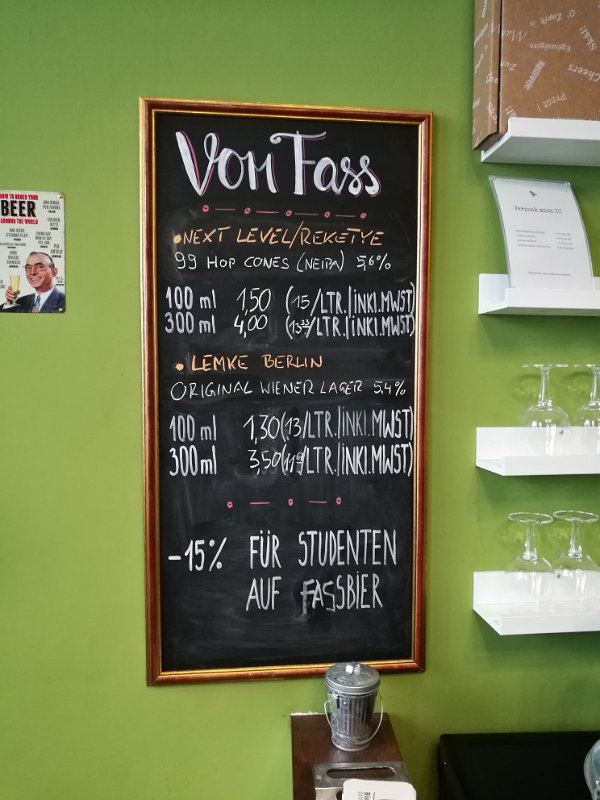 Vom Fass
• NEXT LEVEL/REKETYE
99 HOP CONES (NEIPA) 5,6%
100 ml 1,50 (15/LTR./INKL.MWST)
300 ml 4,00 (13³³/LTR./INKL.MWST)
• LEMKE BERLIN
ORIGINAL WIENER LAGER 5,4%
100 ml 1,30 (13/LTR./INKL.MWST)
300 ml 3,50 (/LTR./INKL.MWST)
-15% FÜR STUDENTEN
AUF FASSBIER
HOW TO ORDER YOUR
BEER
AROUND THE WORLD
Skål!
Egészségére
Cheers
Prost!